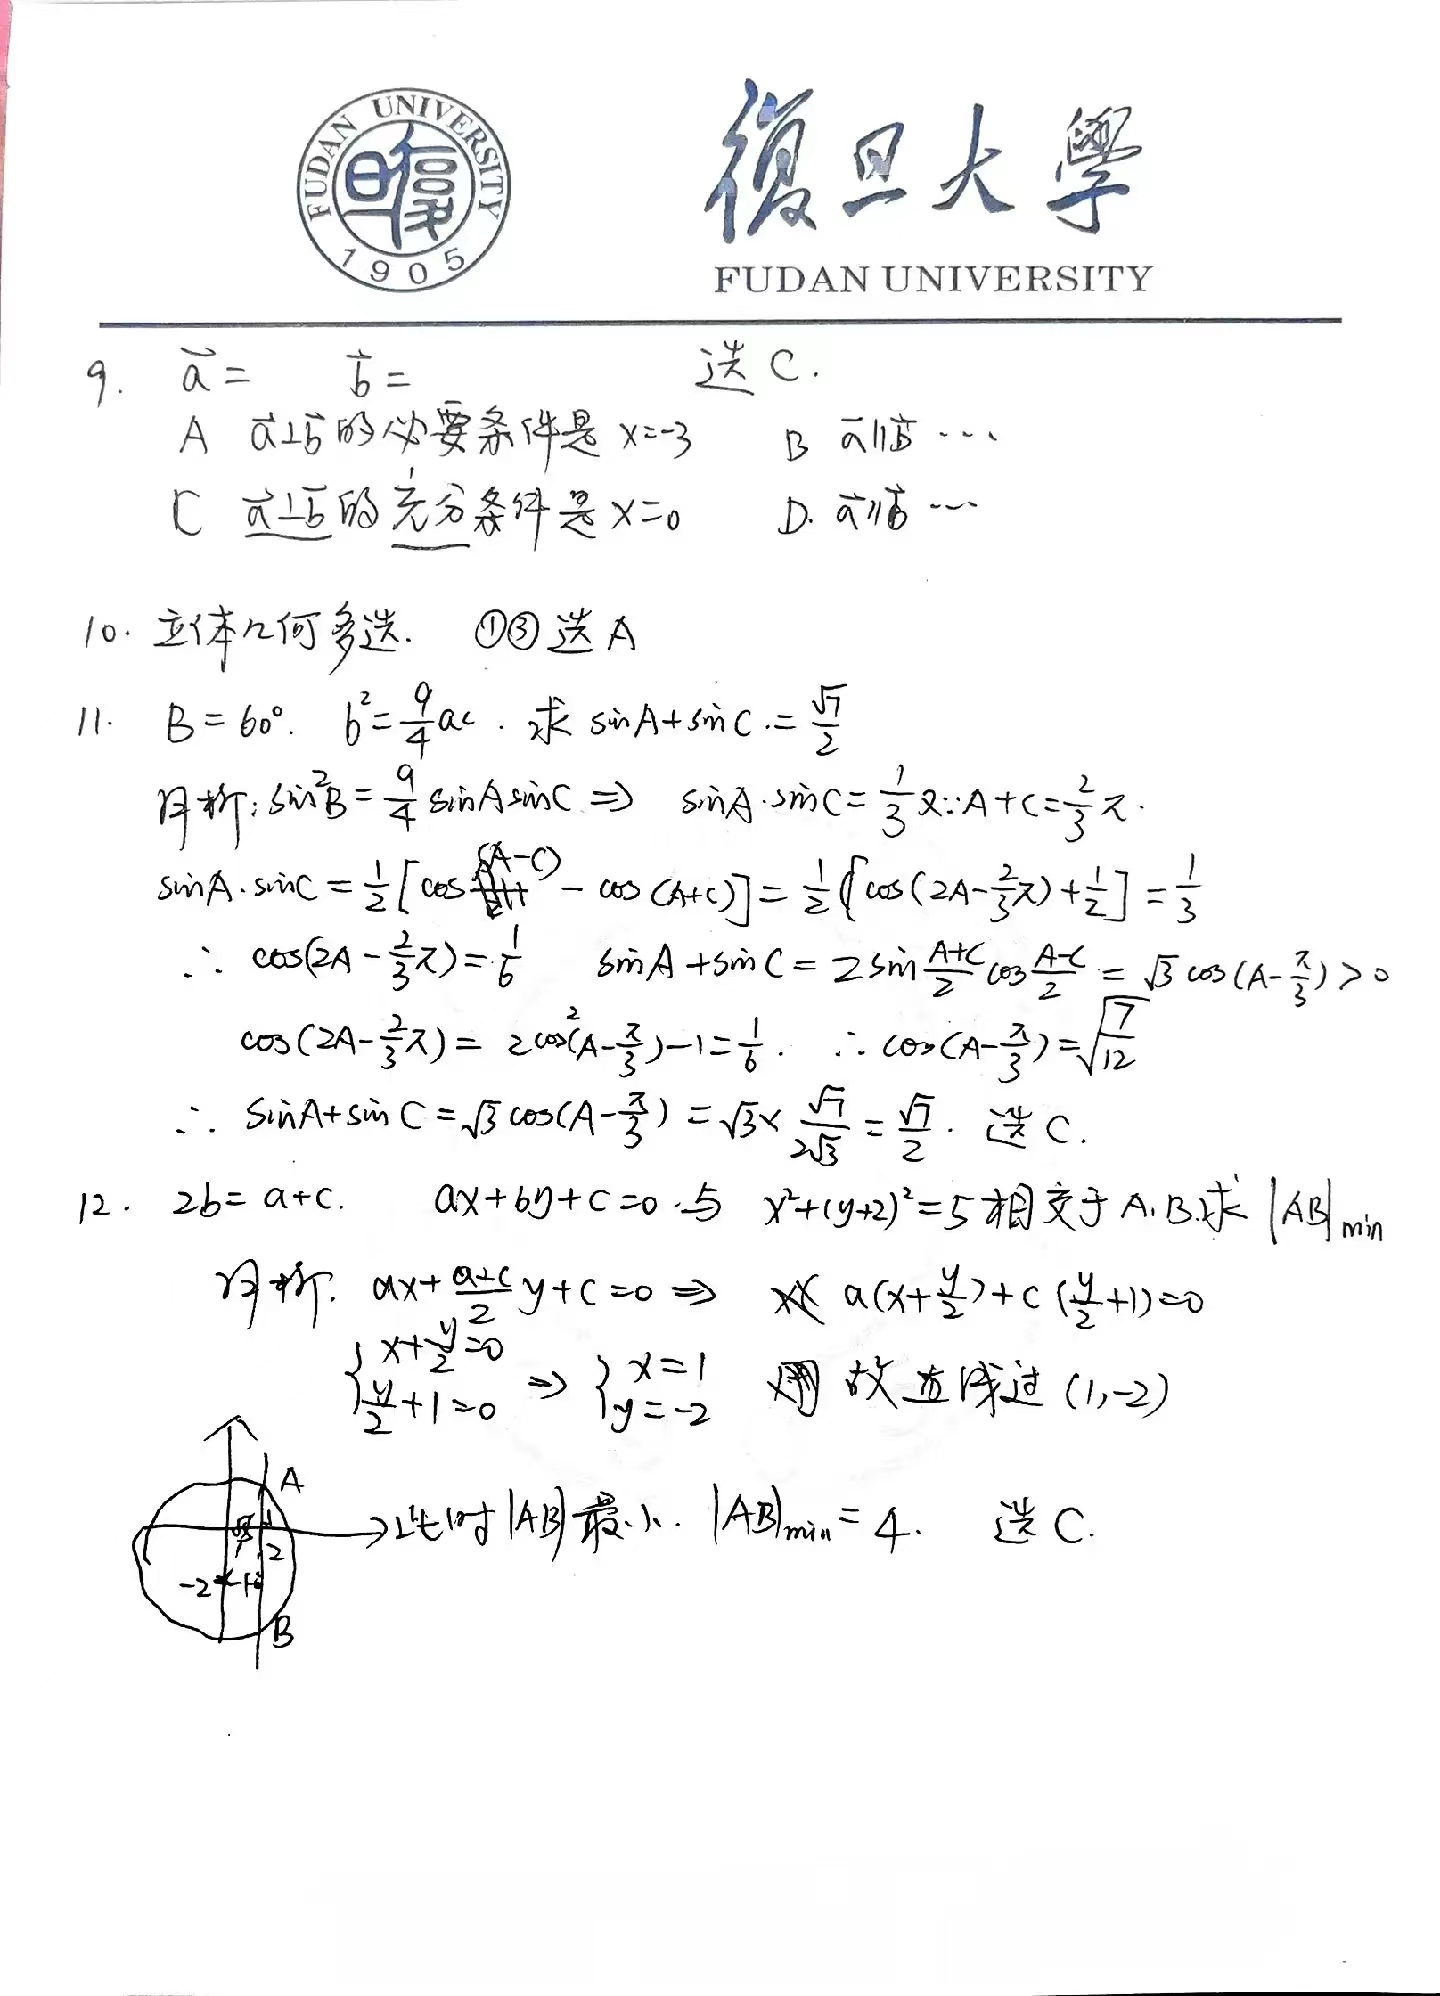 FUDAN UNIVERSITY
1905
復旦大學
FUDAN UNIVERSITY
9. a⃗= b⃗= 选C.
A a⃗⊥b⃗的必要条件是x=-3 B a⃗∥b⃗ ...
C a⃗⊥b⃗的充分条件是x=0 D. a⃗∥b⃗ ...
10. 立体几何多选. ①③选A
11. B=60°. b²=9/4ac. 求 sinA+sinC.=√7/2
解析: sin²B=9/4 sinAsinC ⇒ sinA·sinC=1/3 又∵A+C=2/3π.
sinA·sinC=1/2[cos(A-C)-cos(A+C)]=1/2[cos(2A-2/3π)+1/2]=1/3
∴ cos(2A-2/3π)=1/6 sinA+sinC=2sin A+C/2 cos A-C/2=√3cos(A-π/3)>0
cos(2A-2/3π)=2cos²(A-π/3)-1=1/6. ∴cos(A-π/3)=√7/12
∴ sinA+sinC=√3cos(A-π/3)=√3×√7/2√3=√7/2. 选C.
12. 2b=a+c. ax+by+c=0与 x²+(y+2)²=5相交于A.B.求|AB|min
解析. ax+a+c/2 y+c=0 ⇒ a(x+y/2)+c(y/2+1)=0
{x+y/2=0 y/2+1=0 ⇒ {x=1 y=-2 故直线过(1,-2)
A
此时|AB|最小. |AB|min=4. 选C.
2
-2
B